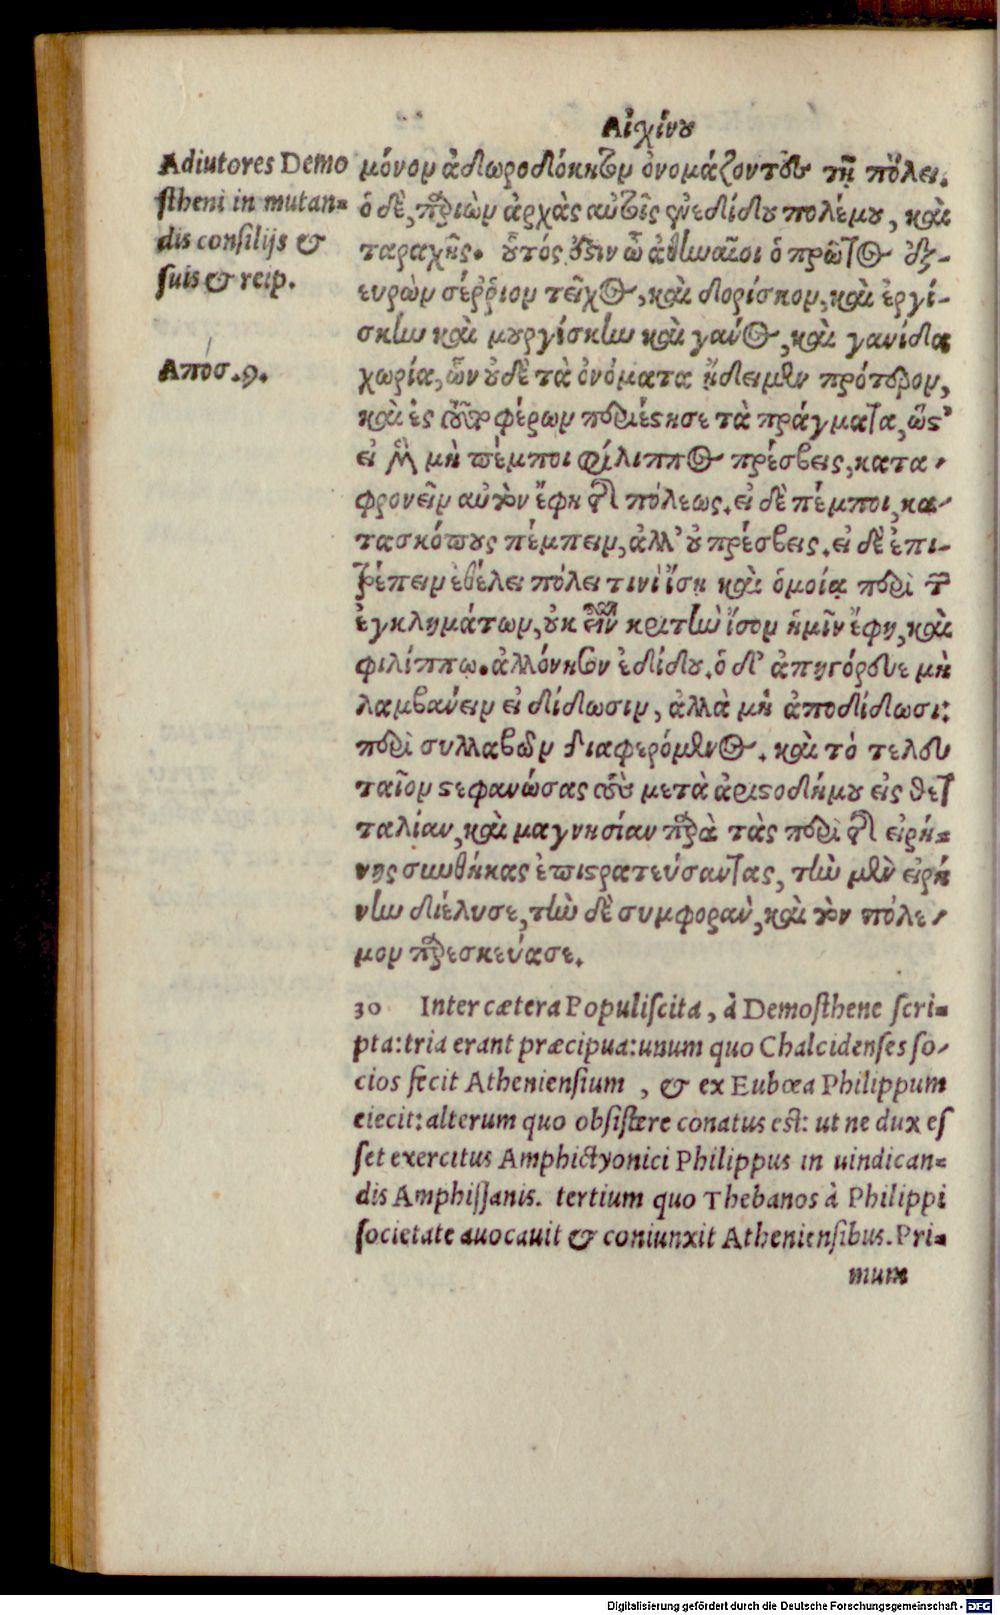 Αἰχίνου
Adiutores Demo
stheni in mutan=
dis consilijs &
suis & reip.
Αποσ.9.
μόνον ἀδωροδόκητον ὀνομάζοντες τῇ πόλει.
ὁ δὲ, παριὼν ἀρχὰς αὐτοῖς ἐνεδίδου πολέμου, καὶ
ταραχῆς. οὗτός ἐστιν ὦ ἀθηναῖοι ὁ πρῶτος ἐξ-
ευρὼν σέῤῥιον τεῖχος, καὶ δορίσκον, καὶ ἐργί-
σκην καὶ μυργίσκην καὶ γανός, καὶ γανίδα
χωρία, ὧν οὐδὲ τὰ ὀνόματα ᾔδειμεν πρότερον,
καὶ ἐς τοῦτο φέρων περιέστησε τὰ πράγματα, ὥστ'
εἰ μὲν μὴ πέμποι φίλιππος πρέσβεις, κατα-
φρονεῖν αὐτὸν ἔφη τῆς πόλεως. εἰ δὲ πέμποι, κα-
τασκόπους πέμπειν, ἀλλ' οὐ πρέσβεις. εἰ δὲ ἐπι-
τρέπειν ἐθέλει πόλει τινὶ ἴσῃ καὶ ὁμοίᾳ περὶ τῶν
ἐγκλημάτων, οὐκ εἶναι κριτὴν ἴσον ἡμῖν ἔφη, καὶ
φιλίππῳ. ἁλλόνησον ἐδίδου. ὁ δ' ἀπηγόρευε μὴ
λαμβάνειν εἰ δίδωσιν, ἀλλὰ μὴ ἀποδίδωσι:
περὶ συλλαβῶν διαφερόμενος. καὶ τὸ τελευ
ταῖον στεφανώσας τοὺς μετὰ ἀριστοδήμου εἰς θετ
ταλίαν, καὶ μαγνησίαν παρὰ τὰς περὶ τῆς εἰρή=
νης συνθήκας ἐπιστρατεύσαντας, τὴν μὲν εἰρή
νην διέλυσε, τὴν δὲ συμφορὰν, καὶ τὸν πόλε-
μον παρεσκεύασε.
30 Inter cætera Populiscita, à Demosthene scri=
pta: tria erant præcipua: unum quo Chalcidenses so-
cios fecit Atheniensium , & ex Eubœa Philippum
eiecit: alterum quo obsistere conatus est: ut ne dux es
set exercitus Amphictyonici Philippus in uindican=
dis Amphissanis. tertium quo Thebanos à Philippi
societate auocauit & coniunxit Atheniensibus. Pri=
mum
Digitalisierung gefördert durch die Deutsche Forschungsgemeinschaft - DFG